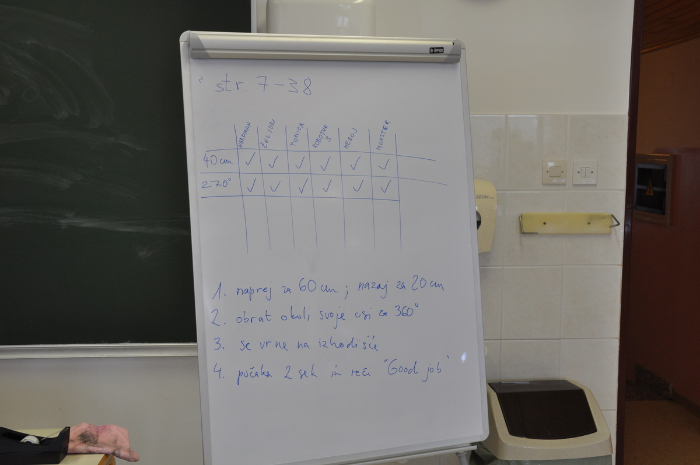 str. 7-38
40cm ✓ ✓ ✓ ✓ ✓ ✓
270° ✓ ✓ ✓ ✓ ✓ ✓
1. naprej za 60 cm ; nazaj za 20 cm
2. obrat okuli svoje osi za 360°
3. se vrne na izhodišče
4. počaka 2 sek in reči "Good job"